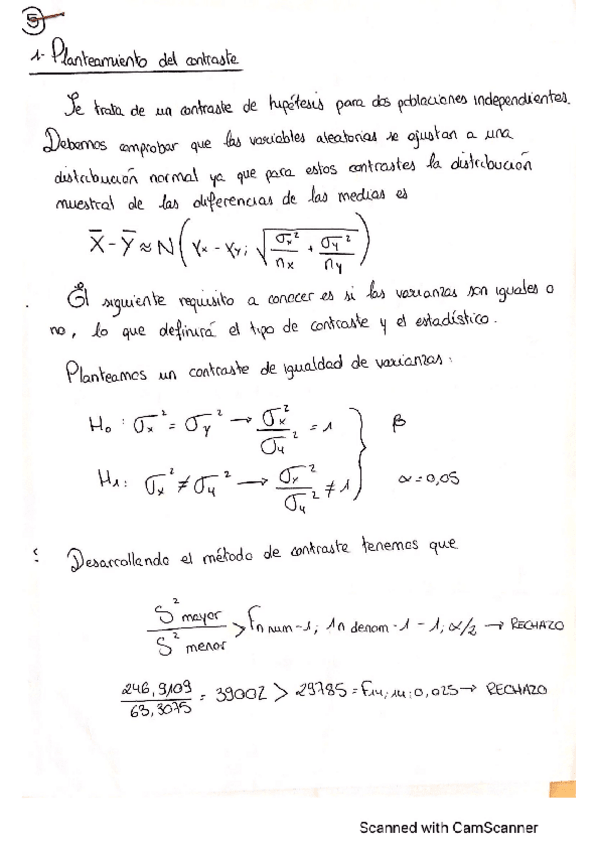 5
1- Planteamiento del contraste
Se trata de un contraste de hipótesis para dos poblaciones independientes.
Debemos comprobar que las variables aleatorias se ajustan a una
distribución normal ya que para estos contrastes la distribución
muestral de las diferencias de las medias es
X̄ - Ȳ ≈ N(γx - γy; √(σx²/nx + σy²/ny))
El siguiente requisito a conocer es si las varianzas son iguales o
no, lo que definirá el tipo de contraste y el estadístico.
Planteamos un contraste de igualdad de varianzas:
H₀: σx² = σy² → σx²/σy² = 1 β
H₁: σx² ≠ σy² → σx²/σy² ≠ 1 α = 0,05
Desarrollando el método de contraste tenemos que
S² mayor / S² menor > fn num-1; 1n denom-1 - 1; α/2 → RECHAZO
246,9109 / 63,3075 = 39002 > 29785 = F14; 14; 0,025 → RECHAZO
Scanned with CamScanner